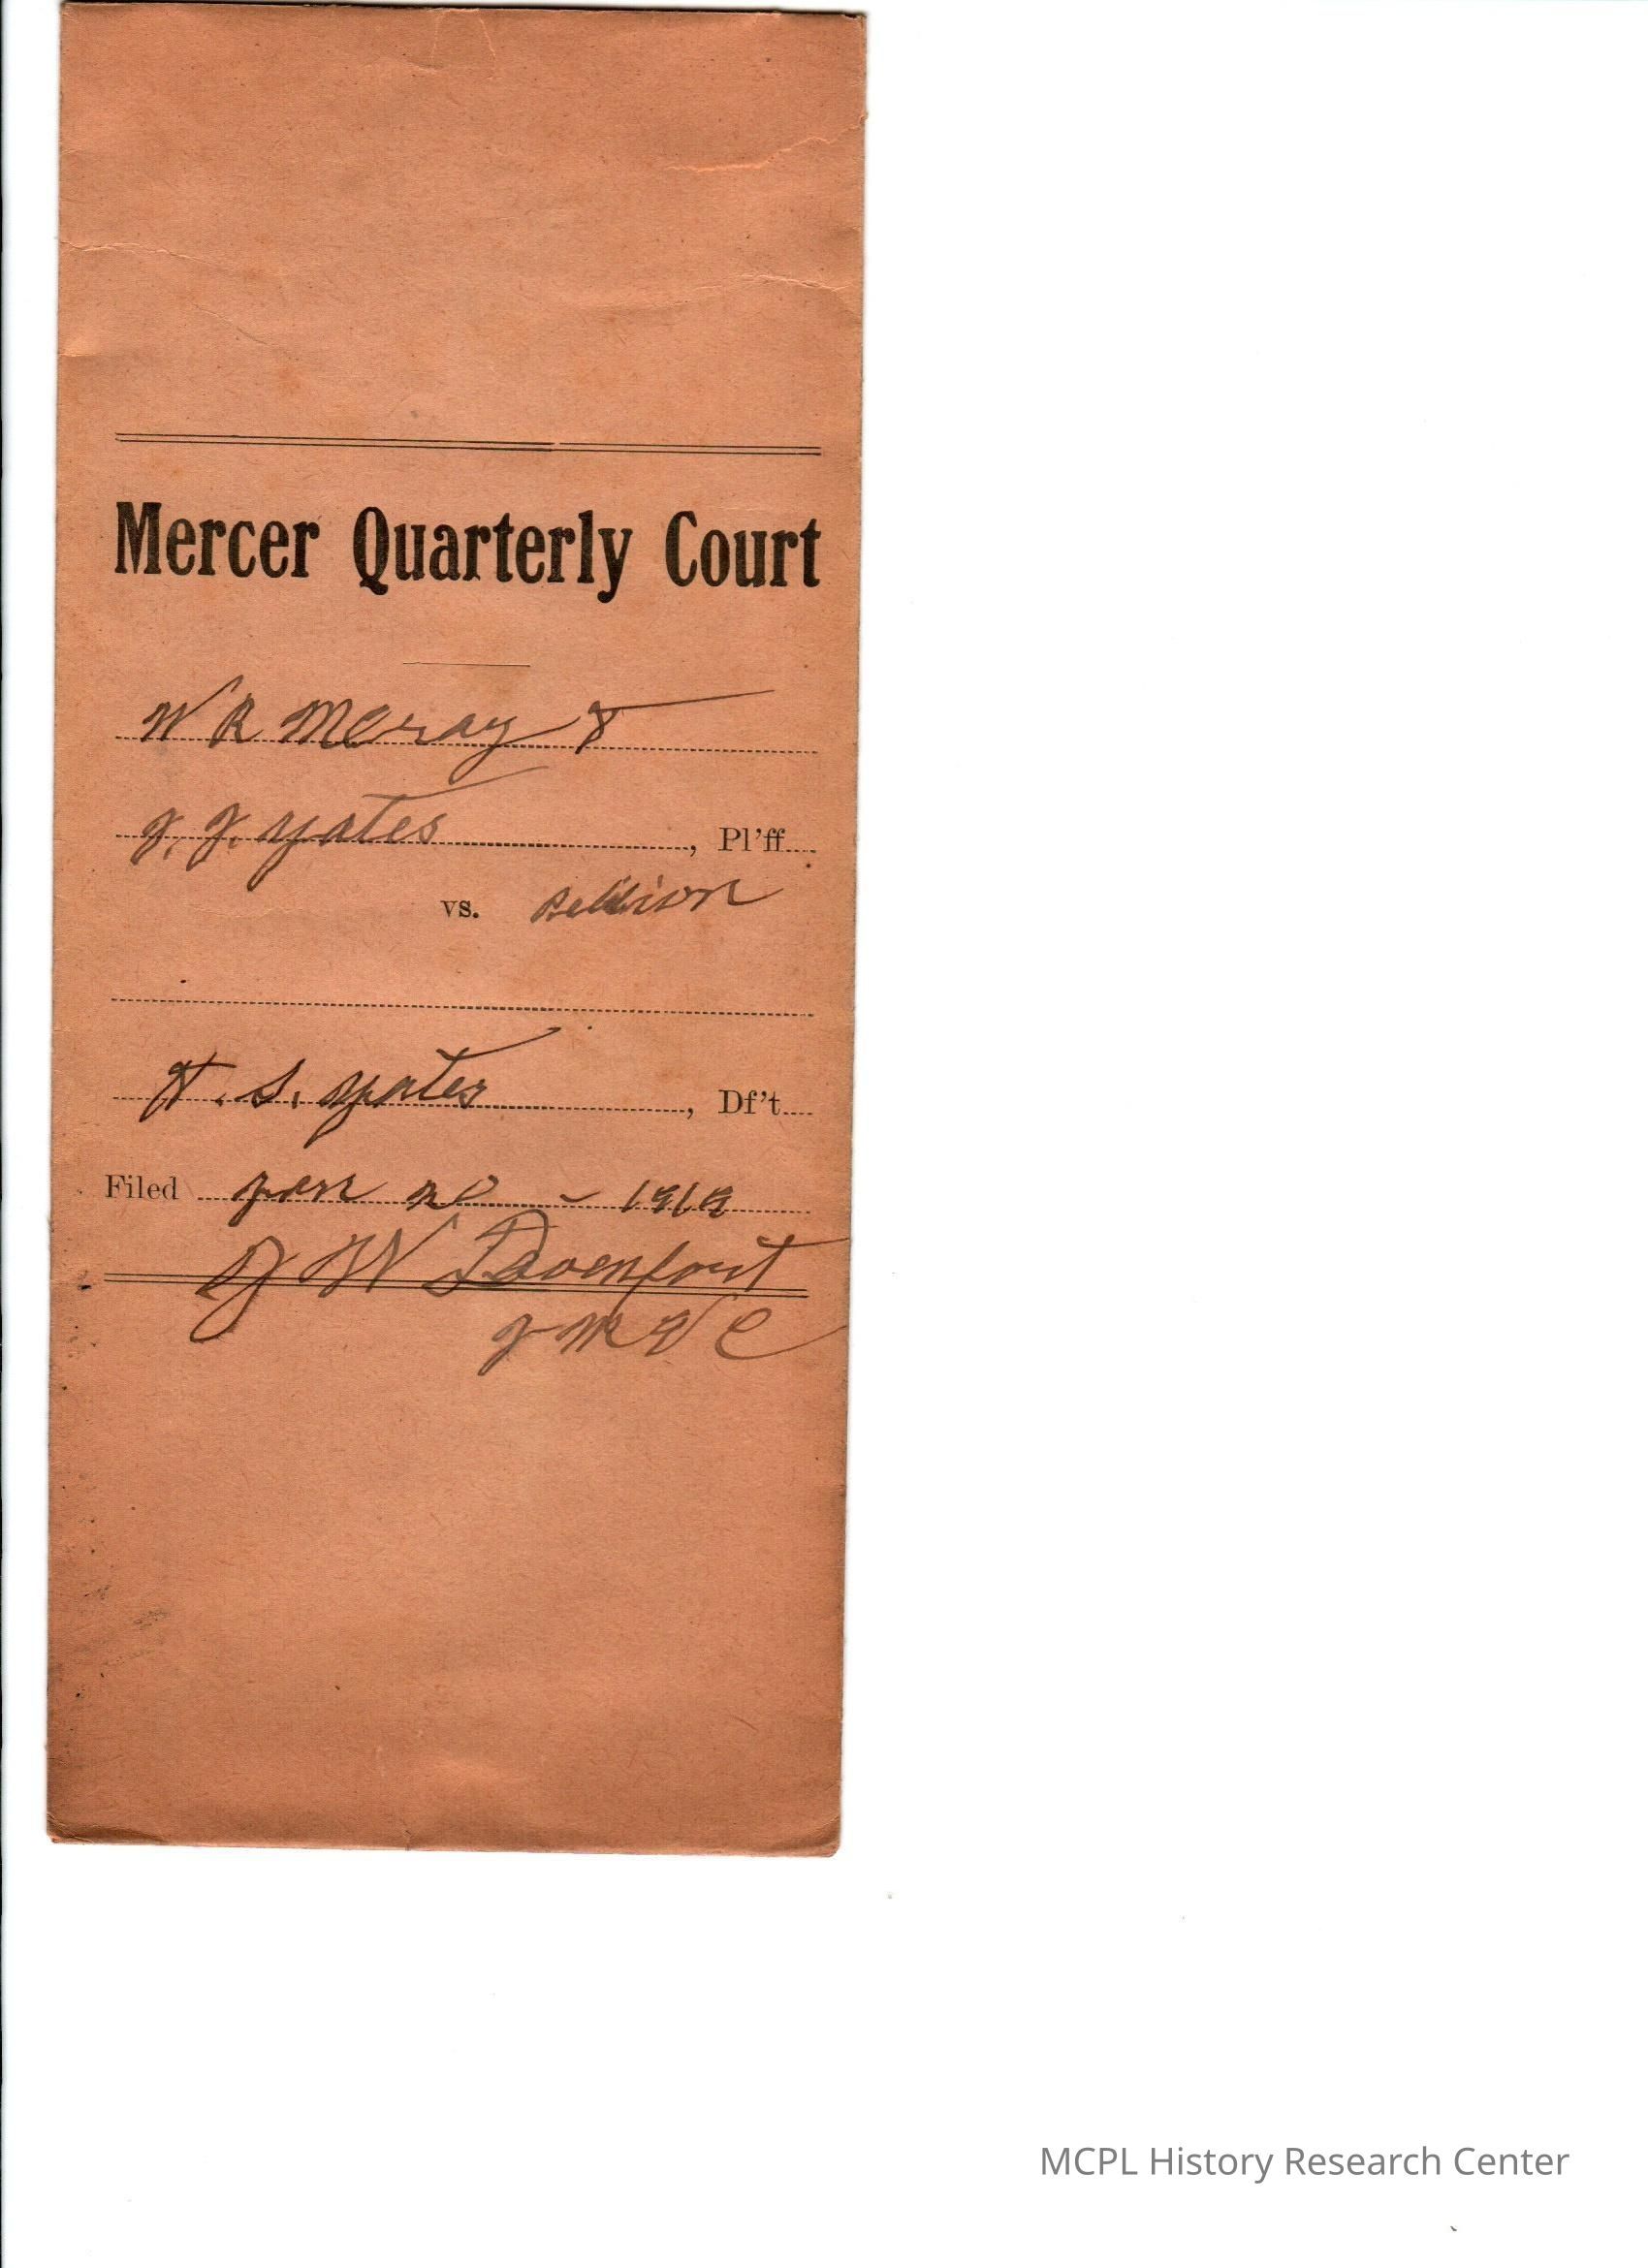 Mercer Quarterly Court
W R McRay &
J. J. Yates, Pl'ff
vs. Petition
S. Yates, Df't
Filed Jan 20 - 1919
J W Davenport
J M Q C
MCPL History Research Center